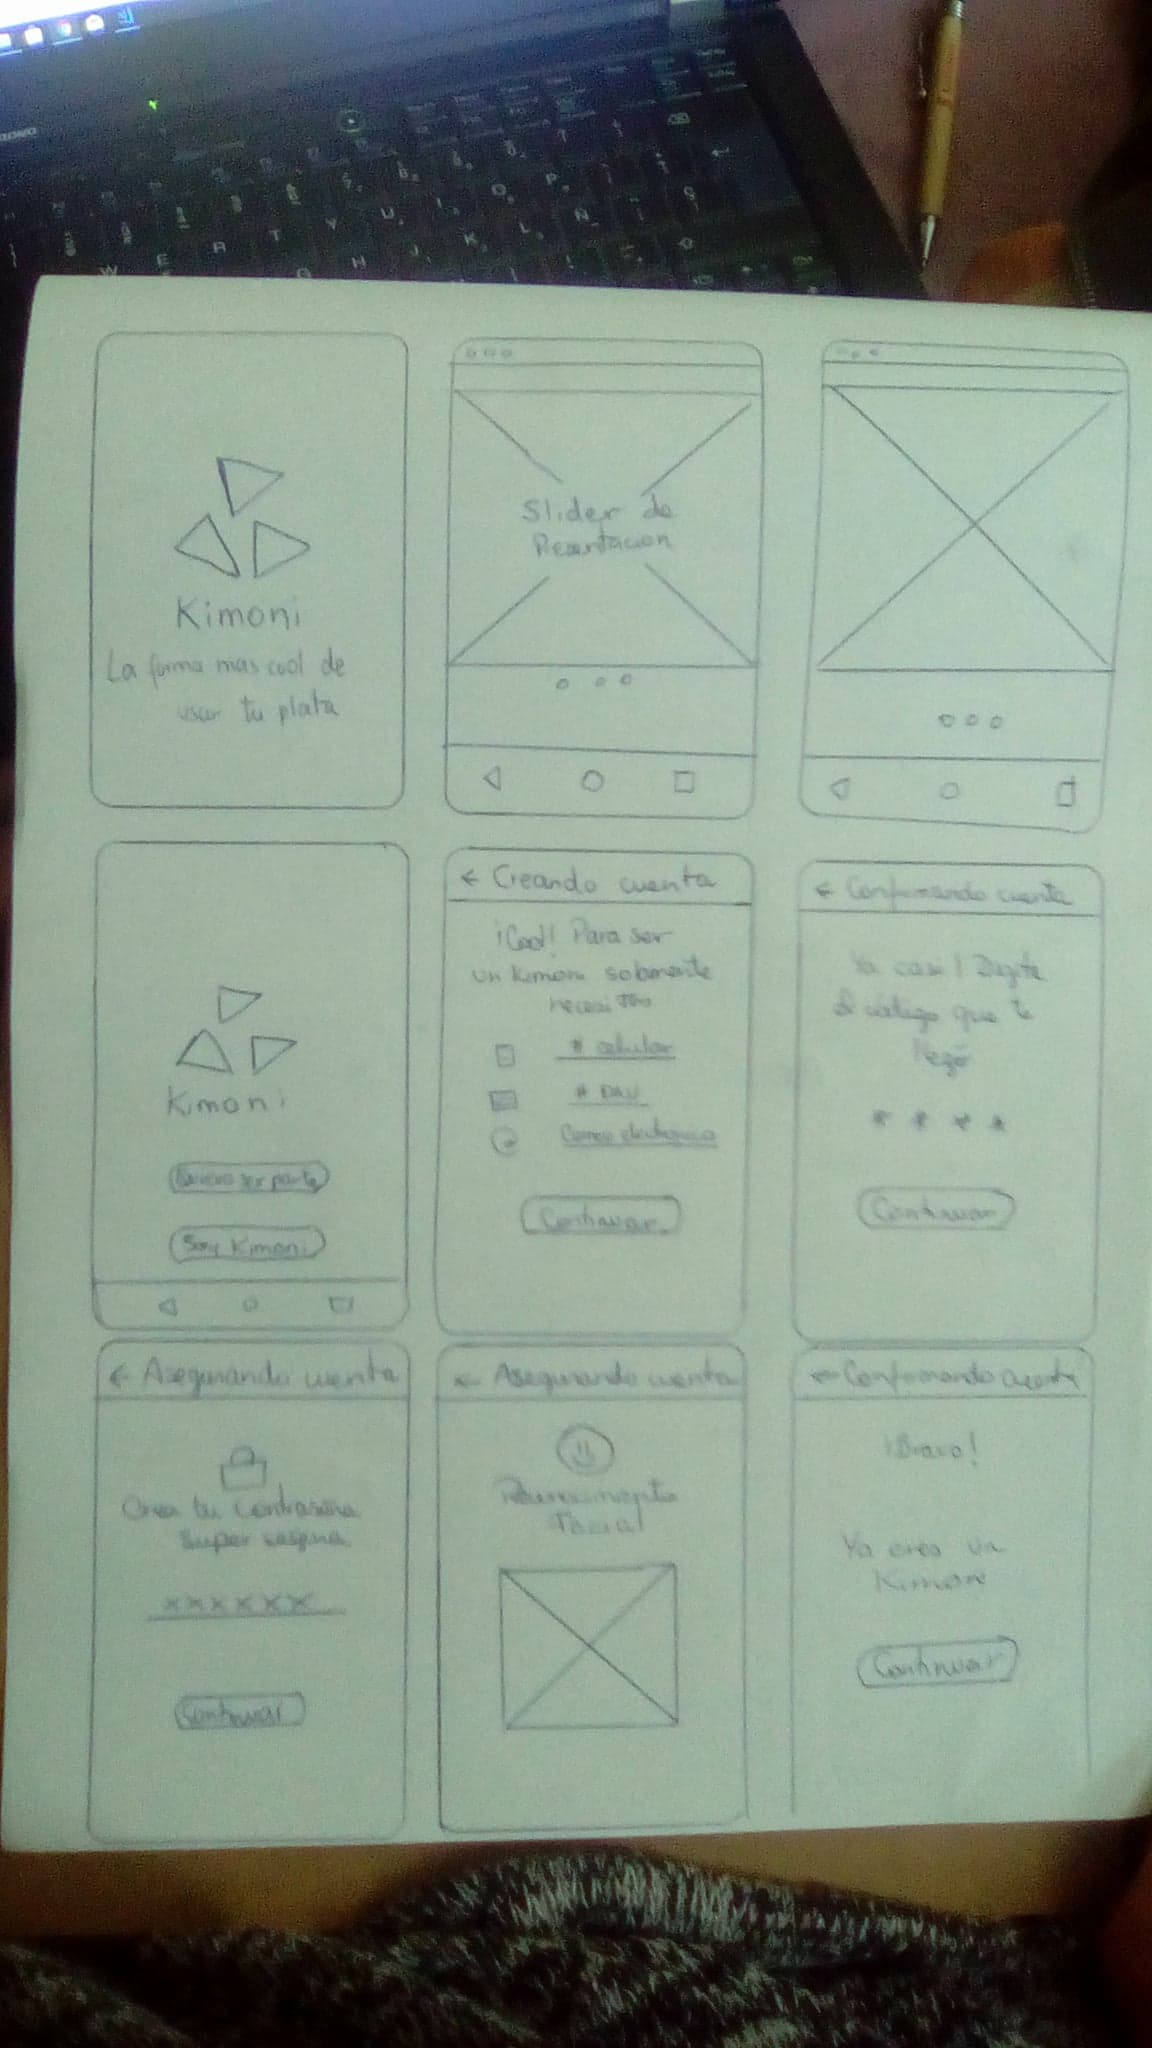 Kimoni
La forma mas cool de
usar tu plata
Slider de
Kimoni
Soy Kimoni
← Creando cuenta
¡Cool! Para ser
un Kimoni solamente
# celular
Correo electronico
Continuar
← Confirmando cuenta
Ya casi! Digite
el código que te
llegó
* * * *
Continuar
← Asegurando cuenta
Crea tu contraseña
super segura
xxxxxx
Continuar
← Asegurando cuenta
Facial
← Confirmando cuenta
¡Bravo!
Ya eres un
Continuar